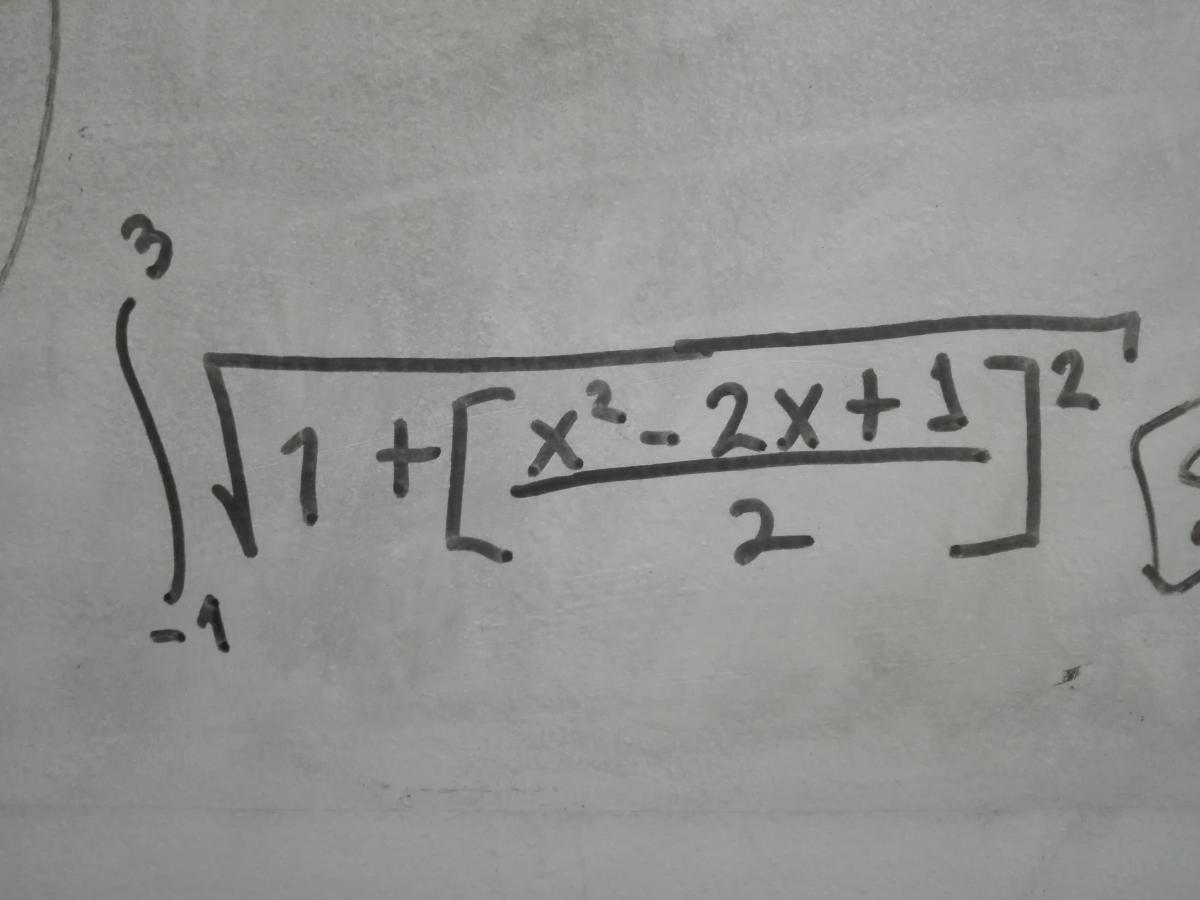 ∫_{-1}^{3} √(1 + [(x² - 2x + 1)/2]²)